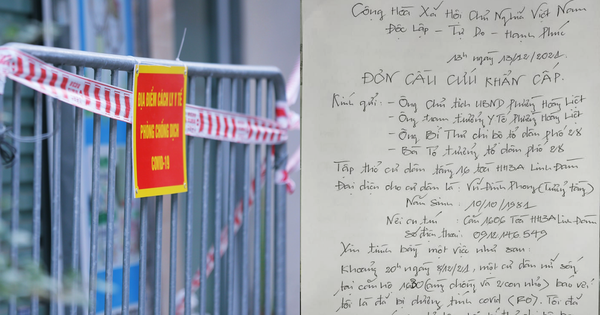 ĐỊA ĐIỂM CÁCH LY Y TẾ
PHÒNG CHỐNG DỊCH
COVID-19
Cộng Hòa Xã Hội Chủ Nghĩa Việt Nam
Độc Lập - Tự Do - Hạnh Phúc
13h ngày 13/12/2021.
ĐƠN CẦU CỨU KHẨN CẤP.
Kính gửi: - Ông Chủ tịch UBND phường Hoàng Liệt
- Ông trạm trưởng Y Tế Phường Hoàng Liệt
- Ông Bí Thư chi bộ tổ dân phố 28
- Bà Tổ trưởng tổ dân phố 28
Tập thể cư dân tầng 16 toà HH3A Linh Đàm
Đại diện cho cư dân là: Vũ Đình Phong (Trưởng tầng)
Năm sinh: 10/10/1981
Nơi cư trú: Căn 1606 Toà HH3A Linh Đàm
Số điện thoại: 0912146549
Xin trình bày một việc như sau:
Khoảng 20h ngày 8/12/21, một cư dân nữ sống
tại căn hộ (cùng chồng và 2 con nhỏ) báo về
tôi là đã bị dương tính covid (F0). Tôi đã